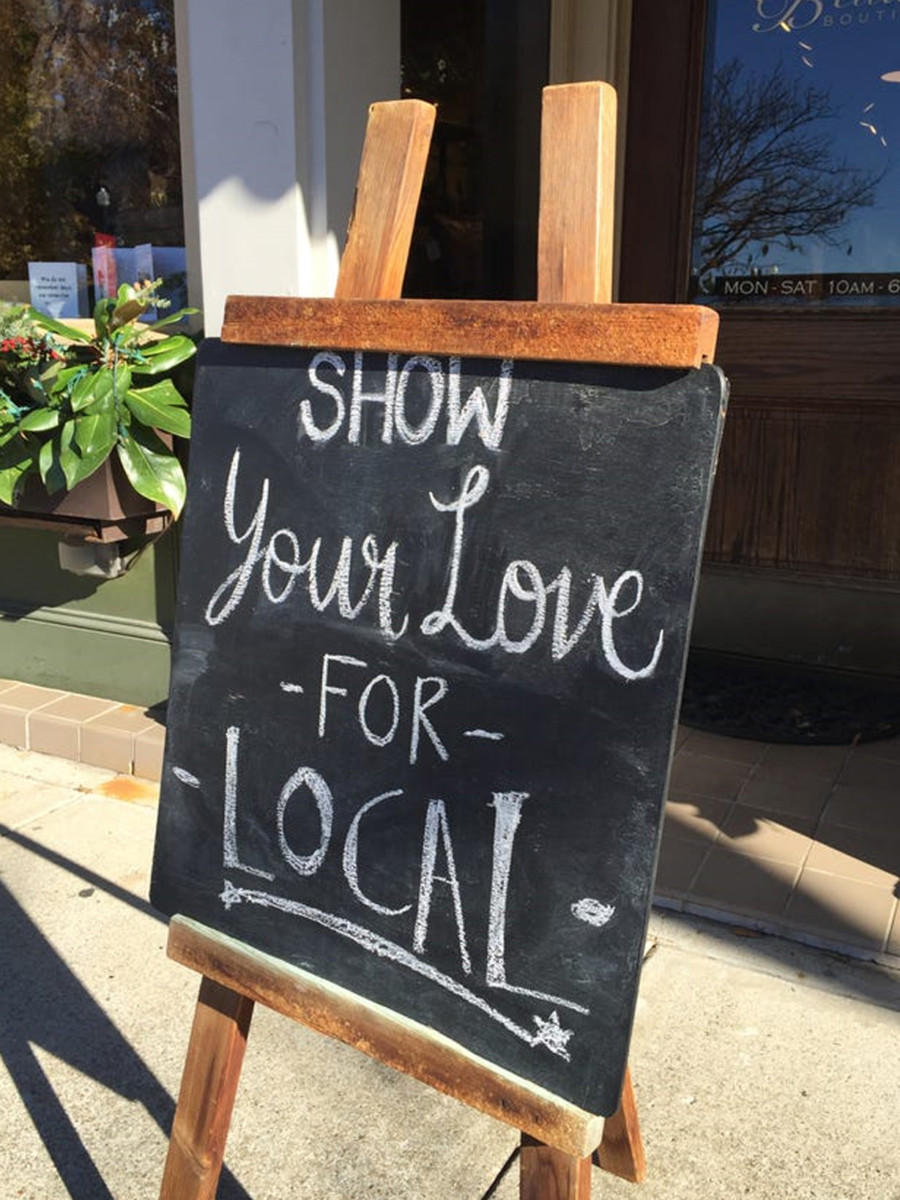 BOUTI
MON-SAT 10AM-6
SHOW
Your Love
-FOR-
-LOCAL-